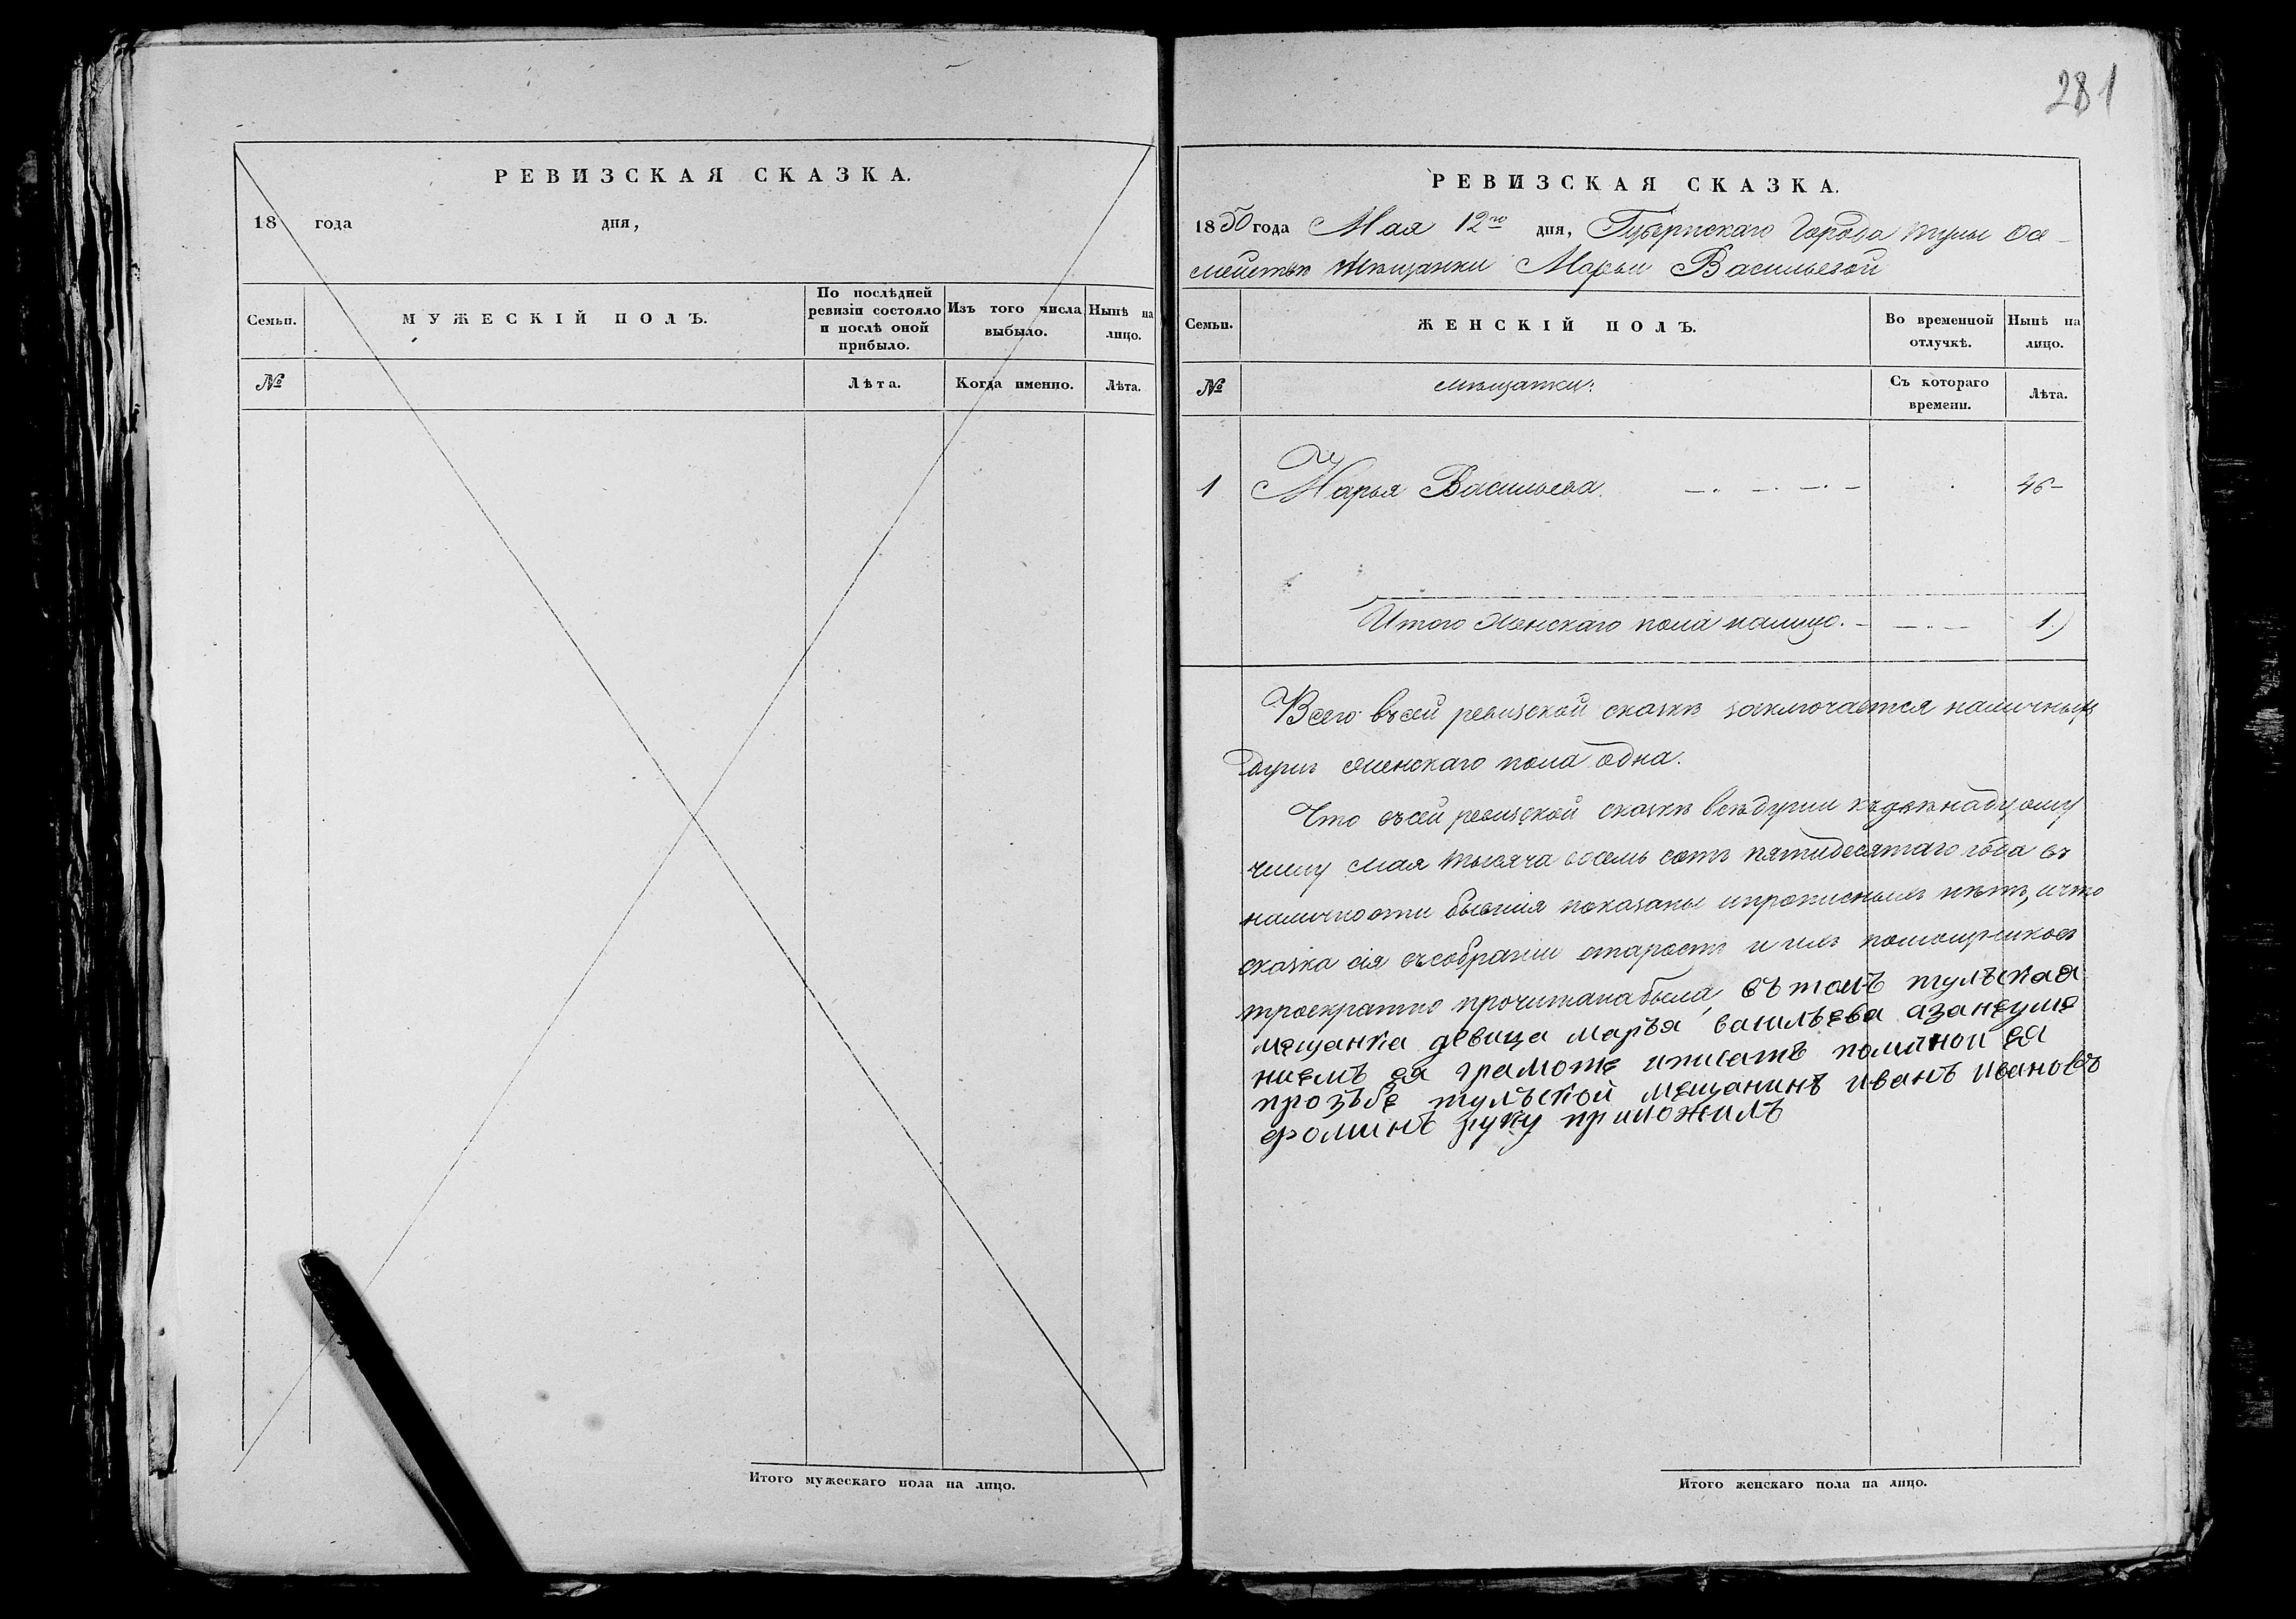 281
РЕВИЗСКАЯ СКАЗКА.
18 года дня,
Семьи.
МУЖЕСКІЙ ПОЛЪ.
По послѣдней ревизіи состояло и послѣ оной прибыло.
Изъ того числа выбыло.
Нынѣ на лицо.
№
Лѣта.
Когда именно.
Лѣта.
Итого мужескаго пола на лицо.
РЕВИЗСКАЯ СКАЗКА.
1850 года Мая 12го дня, Губернскаго Города тулы
мѣщанки Марьи Васильевой
Семьи.
ЖЕНСКІЙ ПОЛЪ.
Во временной отлучкѣ.
Нынѣ на лицо.
№
мѣщанки:
Съ котораго времени.
Лѣта.
1 Марья Васильева. 46
Итого женскаго пола налицо. 1
Всего въсей ревизской сказкѣ заключается наличныхъ
душъ женскаго пола одна.
Что въсей ревизской сказкѣ всѣ души
числу мая тысяча восемь сотъ пятидесятаго года въ
наличности бывшія показаны ипрописныхъ нѣтъ, ичто
сказка сія въсобраніи старостъ и ихъ помощниковъ
троекратно прочитана была, въ томъ тулъская
мещанка девица маръя василъева азанеуме
ниемъ ея грамоте иписатъ полично и ея
прозъбе тулъской мещанинъ иванъ ивановъ
фоминъ руку приложилъ
Итого женскаго пола на лицо.